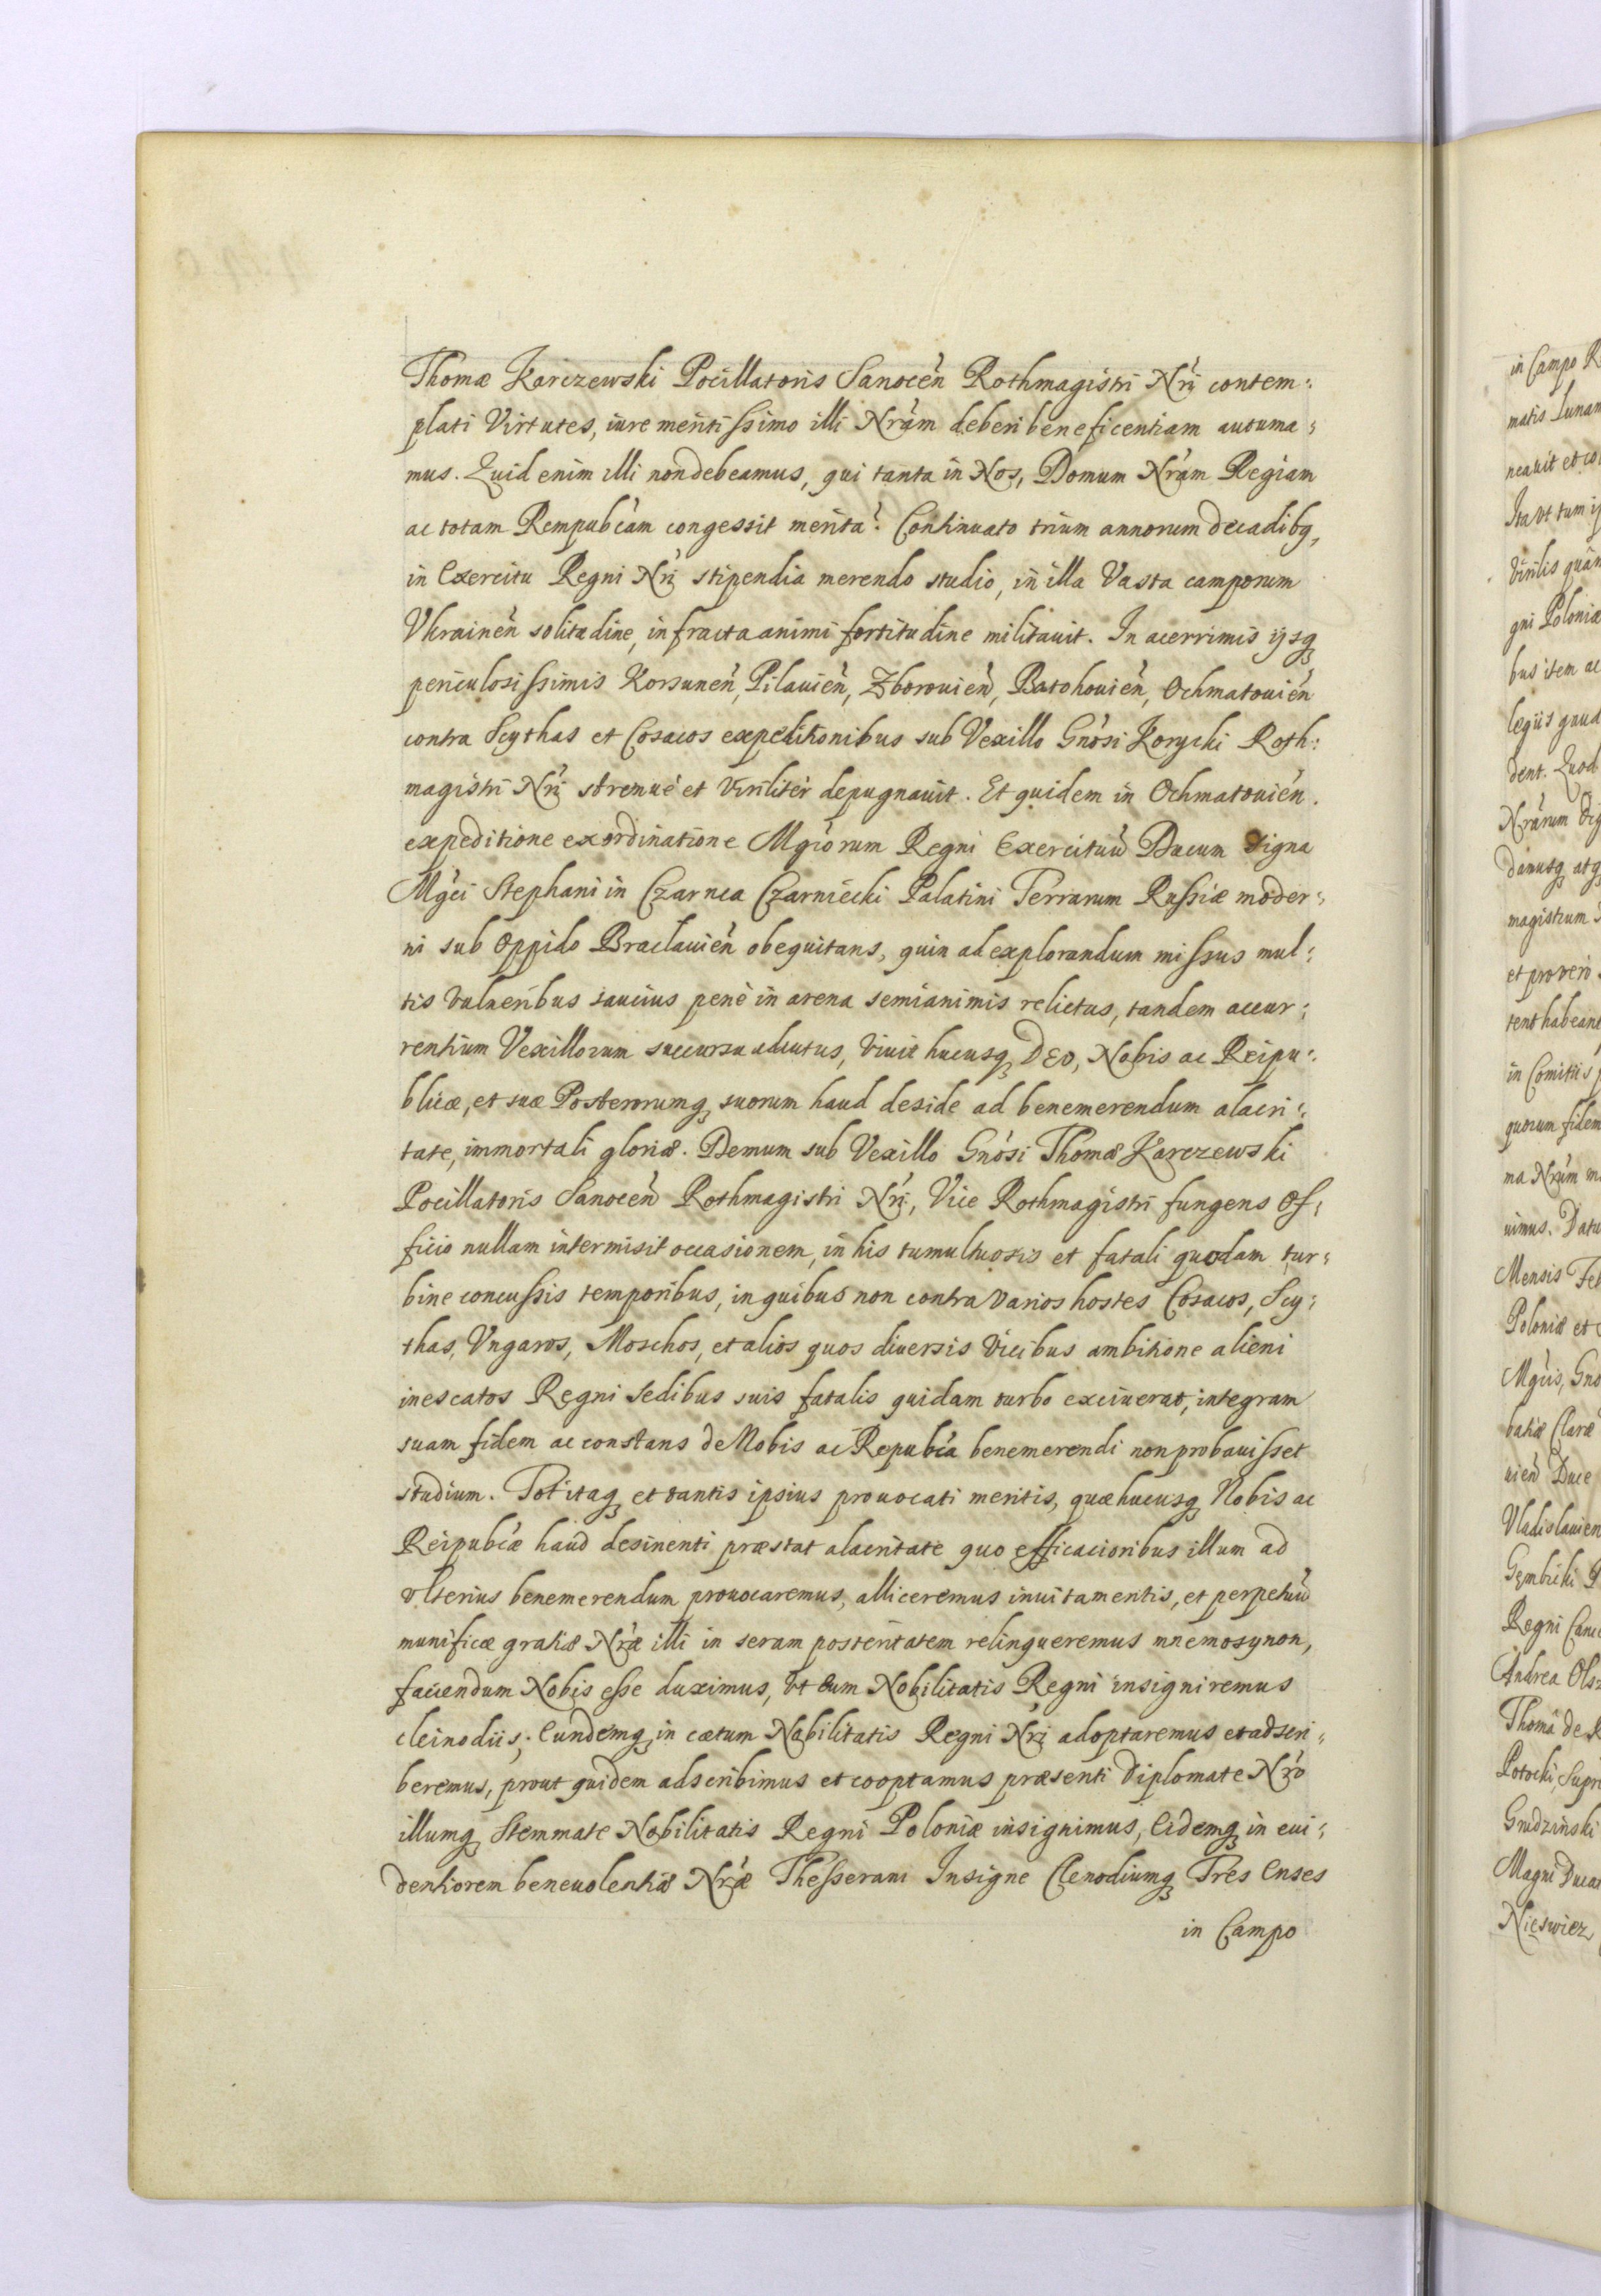 Thomæ Karczewski Pocillatoris Sanocen̄ Rothmagistri Nrī contem:
plati Virtutes, iure meritissimo illi Nrām deberi beneficentiam autuma:
mus. Quid enim illi non debeamus, qui tanta in Nos, Domum Nrām Regiam
ac totam Rempubcām congessit merita? Continuato trium annorum decadibq,
in Exercitu Regni Nrī stipendia merendo studio, in illa Vasta camporum
Vkrainen̄ solitudine, infracta animi fortitudine militauit. In acerrimis ijsq
periculosissimis Korsunen̄, Pilauien̄, Zborouien̄, Batohouien̄, Ochmatouien̄
contra Scythas et Cosacos expeditionibus sub Vexillo Gnōsi Korycki Roth:
magistri Nrī strenuè et Viriliter depugnauit. Et quidem in Ochmatouien̄.
expeditione ex ordinatione Mgīorum Regni Exercituū Ducum signa
Mgcī Stephani in Czarnca Czarniecki Palatini Terrarum Russiæ moder:
ni sub Oppido Braclauien̄ obequitans, quin ad explorandum missus mul:
tis Vulneribus saucius penè in arena semianimis relictus, tandem accur:
rentium Vexillorum succursu adiutus, viuit hucusq DEO, Nobis ac Reipu:
blicæ, et suæ Posterorumq suorum haud deside ad benemerendum alacri:
tate, immortali gloriæ. Demum sub Vexillo Gnōsi Thomæ Karczewski
Pocillatoris Sanocen̄ Rothmagistri Nrī, Vice Rothmagistri fungens Of:
ficio nullam intermisit occasionem, in his tumultuosis et fatali quodam tur:
bine concussis temporibus, in quibus non contra varios hostes Cosacos, Scy:
thas, Vngaros, Moschos, et alios quos diuersis Vicibus ambitione alieni
inescatos Regni sedibus suis fatalis quidam turbo exciuerat, integram
suam fidem ac constans de Nobis ac Repubcā benemerendi non probauisset
studium. Tot itaq et tantis ipsius prouocati meritis, quæ hucusq Nobis ac
Reipubcæ haud desinenti præstat alacritate quo efficacioribus illum ad
vlterius benemerendum prouocaremus, alliceremus inuitamentis, et perpetuū
munificæ gratiæ Nrāe illi in seram posteritatem relinqueremus mnemosynon,
faciendum Nobis esse duximus, vt eum Nobilitatis Regni insigniremus
cleinodiis; Eundemq in cœtum Nobilitatis Regni Nrī adoptaremus et adscri:
beremus, prout quidem adscribimus et cooptamus præsenti Diplomate Nrō
illumq Stemmate Nobilitatis Regni Poloniæ insignimus, Eidemq in eui:
dentiorem beneuolentiæ Nrāe Thesseram Insigne Clenodiumq Tres Enses
in Campo
in Campo
matis Lunam
neauit et
Ita vt tum
Virilis quàm
gni Poloniæ
bus item ac
legiis gaud
dent. Quod
Nrārum
danusq atq
magistrum
et pro vero
tent habeant
in Comitiis
quorum fidem
ma Nrām
uimus. Datu
Mensis Feb
Poloniæ et
Mgciis, Gno
batiæ Claræ
uien̄ Duce
Vladislauien
Gembicki
Regni Canc
Andrea Olsz
Thoma de
Potocki, Supr
Grudzinski
Magni Ducat
Nieswiez,